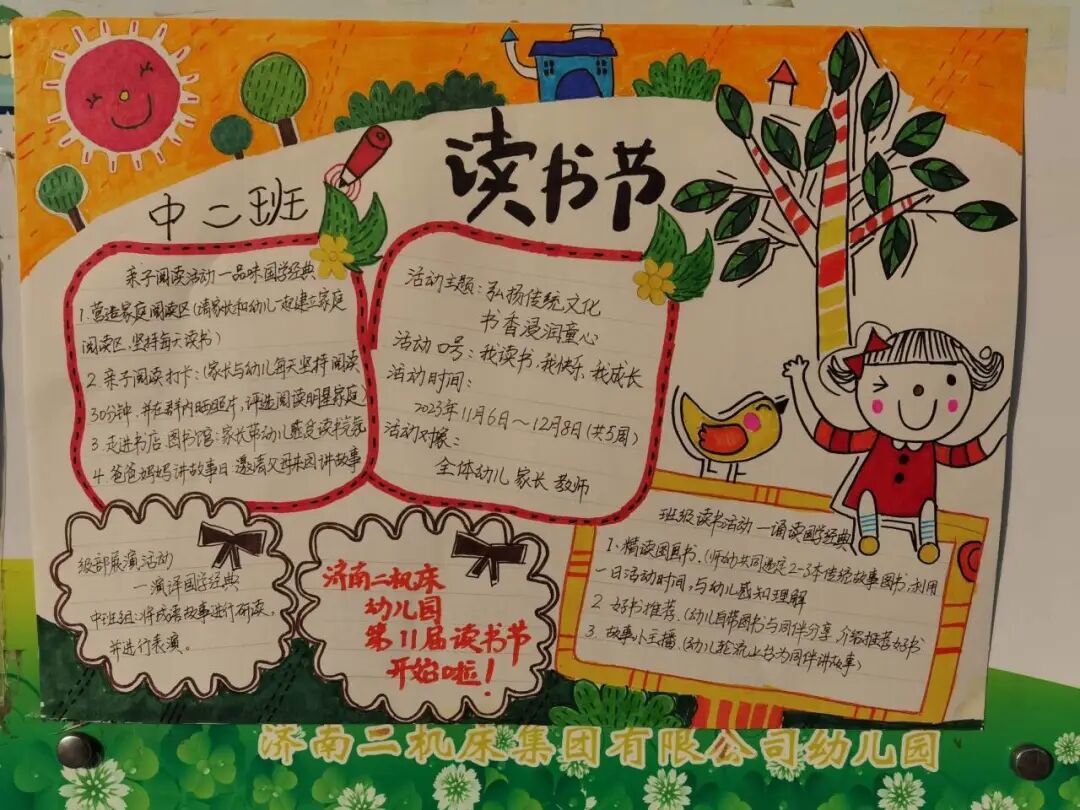 读书节
中二班
亲子阅读活动—品味国学经典
1.营造家庭阅读区(请家长和幼儿一起建立家庭
阅读区,坚持每天读书)
2.亲子阅读打卡:(家长与幼儿每天坚持阅读
30分钟,并在群内晒照片,评选阅读明星家庭
3.走进书店.图书馆:家长带幼儿感受读书氛围
4.爸爸妈妈讲故事日:邀请父母来园讲故事
活动主题:弘扬传统文化
书香浸润童心
活动口号:我读书.我快乐.我成长
活动时间:
2023年11月6日~12月8日(共5周)
活动对象:
全体幼儿 家长 教师
级部展演活动
—演译国学经典
中班组:将成语故事进行研读,
并进行表演。
济南二机床
幼儿园
第11届读书节
开始啦!
班级读书活动—诵读国学经典
1、精读图画书、(师幼共同选定2-3本传统故事图书,利用
一日活动时间,与幼儿感知理解
2、好书推荐、(幼儿自带图书与同伴分享、介绍推荐好书
3、故事小主播、(幼儿轮流上台为同伴讲故事)
济南二机床集团有限公司幼儿园